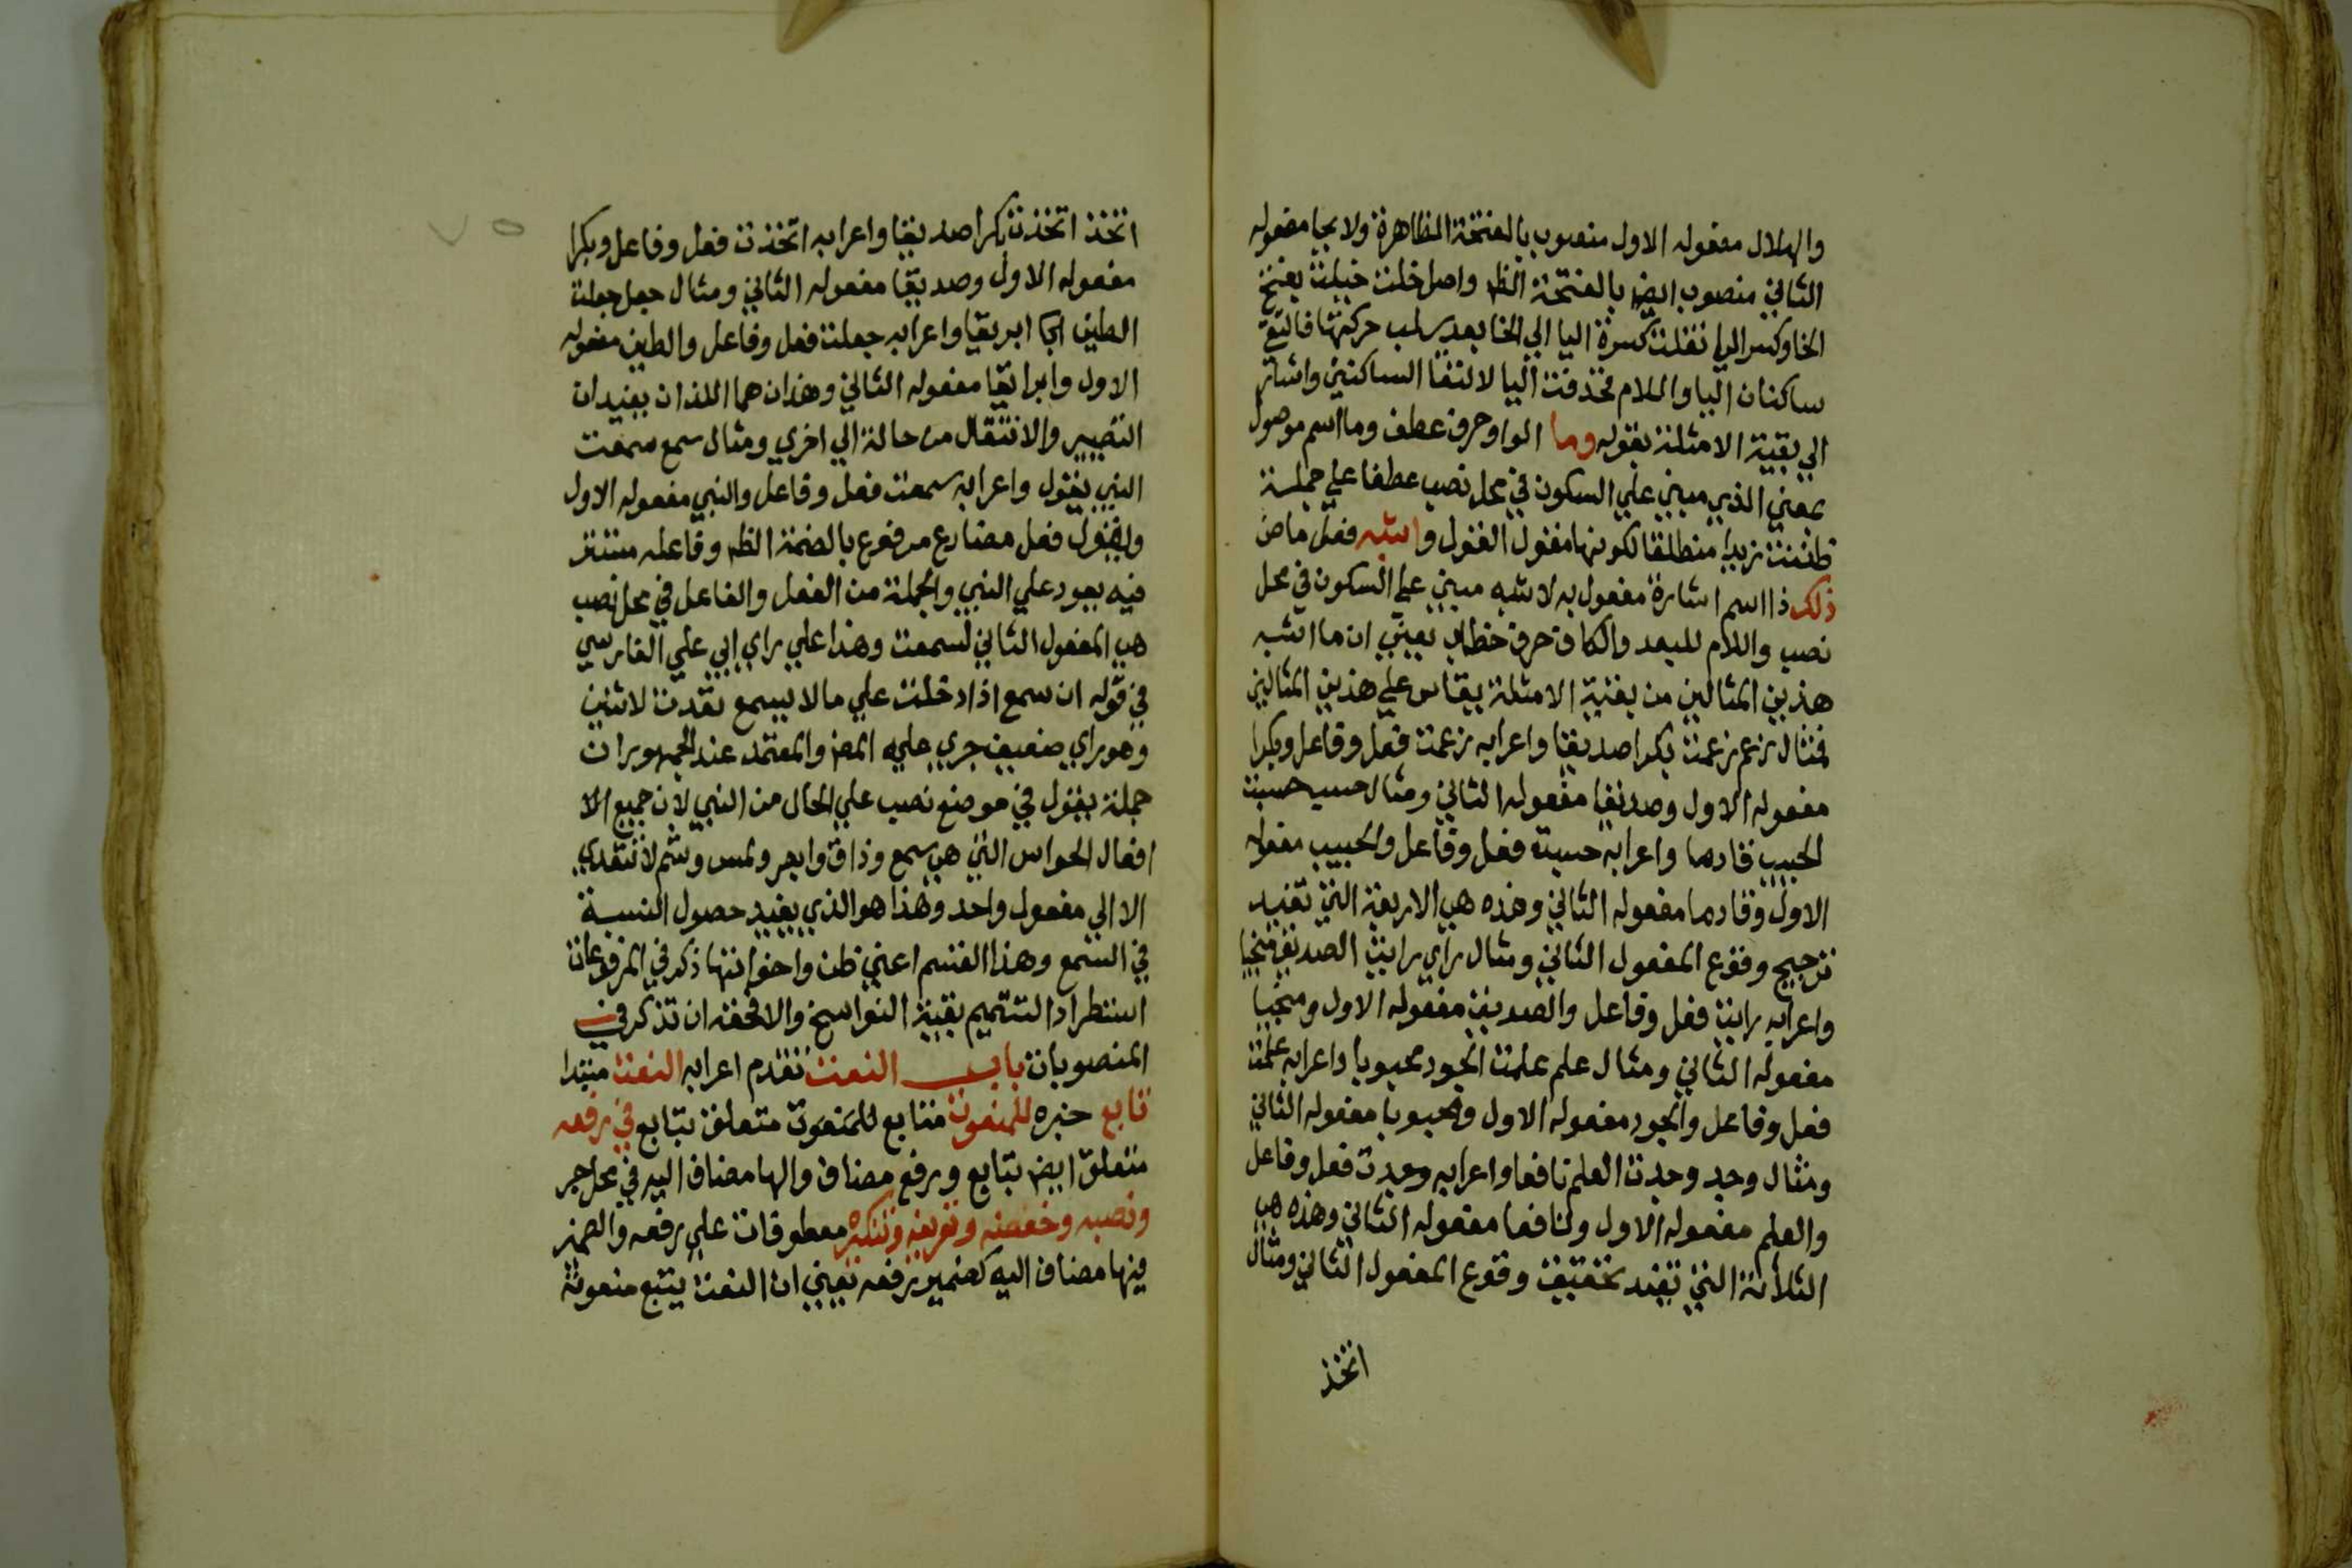 والهلال مفعوله الاول منصوب بالفتحة الظاهرة ولايحا مفعوله
الثاني منصوب ايض بالفتحة الظ واصل خلت خيلت بفتح
الخا وكسر اليا نقلت كسرة اليا الي الخا بعد سلب حركتها فالتقي
ساكنان اليا واللام فحذفت اليا لالتقا الساكنين واشار
الي بقية الامثلة بقوله وما الواو حرف عطف وما اسم موصول
بمعني الذي مبني علي السكون في محل نصب عطفا علي جملة
ظننت زيدا منطلقا لكونها مفعول القول واشبه فعل ماض
ذلك ذا اسم اشارة مفعول به لاشبه مبني علي السكون في محل
نصب واللام للبعد والكاف حرف خطاب يعني ان ما اشبه
هذين المثالين من بقية الامثلة يقاس علي هذين المثالين
فمثال زعم زعمت بكرا صديقا واعرابه زعمت فعل وفاعل وبكرا
مفعوله الاول وصديقا مفعوله الثاني ومثال حسب حسبت
الحبيب قادما واعرابه حسبت فعل وفاعل والحبيب مفعوله
الاول وقادما مفعوله الثاني وهذه هي الاربعة التي تفيد
ترجيح وقوع المفعول الثاني ومثال راي رايت الصديق منجيا
واعرابه رايت فعل وفاعل والصديق مفعوله الاول ومنجيا
مفعوله الثاني ومثال علم علمت الجود محبوبا واعرابه علمت
فعل وفاعل والجود مفعوله الاول ومحبوبا مفعوله الثاني
ومثال وجد وجدت العلم نافعا واعرابه وجدت فعل وفاعل
والعلم مفعوله الاول ونافعا مفعوله الثاني وهذه هي
الثلاثة التي تفيد تحقيق وقوع المفعول الثاني ومثال
اتخذ
٧٥
اتخذ اتخذت بكرا صديقا واعرابه اتخذت فعل وفاعل وبكرا
مفعوله الاول وصديقا مفعوله الثاني ومثال جعل جعلت
الطين ابريقا واعرابه جعلت فعل وفاعل والطين مفعوله
الاول وابرايقا مفعوله الثاني وهذان هما اللذان يفيدان
التصيير والانتقال من حالة الي اخري ومثال سمع سمعت
النبي يقول واعرابه سمعت فعل وفاعل والنبي مفعوله الاول
ويقول فعل مضارع مرفوع بالضمة الظ وفاعله مستتر
فيه يعود علي النبي والجملة من الفعل والفاعل في محل نصب
هي المفعول الثاني لسمعت وهذا علي راي ابي علي الفارسي
في قوله ان سمع اذا دخلت علي ما لا يسمع تعدت لاثنين
وهو راي ضعيف جري عليه المص والمعتمد عند الجمهور ان
جملة يقول في موضع نصب علي الحال من النبي لان جميع الا
افعال الحواس التي هي سمع وذاق وابصر ولمس وشم لا تتعدي
الا الي مفعول واحد وهذا هو الذي يفيد حصول النسبة
في السمع وهذا القسم اعني ظن واخواتها ذكر في المرفوعات
استطرادا لتتميم بقية النواسخ والا فحقه ان تذكر في
المنصوبات باب النعت تقدم اعرابه النعت مبتدا
تابع خبره للمنعوت فتابع للمنعوت متعلق بتابع في رفعه
متعلق ايض بتابع ورفع مضاف والها مضاف اليه في محل جر
ونصبه وخفضه وتعريفه وتنكيره معطوفات علي رفعه والضمير
فيها مضاف اليه كضمير رفعه يعني ان النعت يتبع منعوته